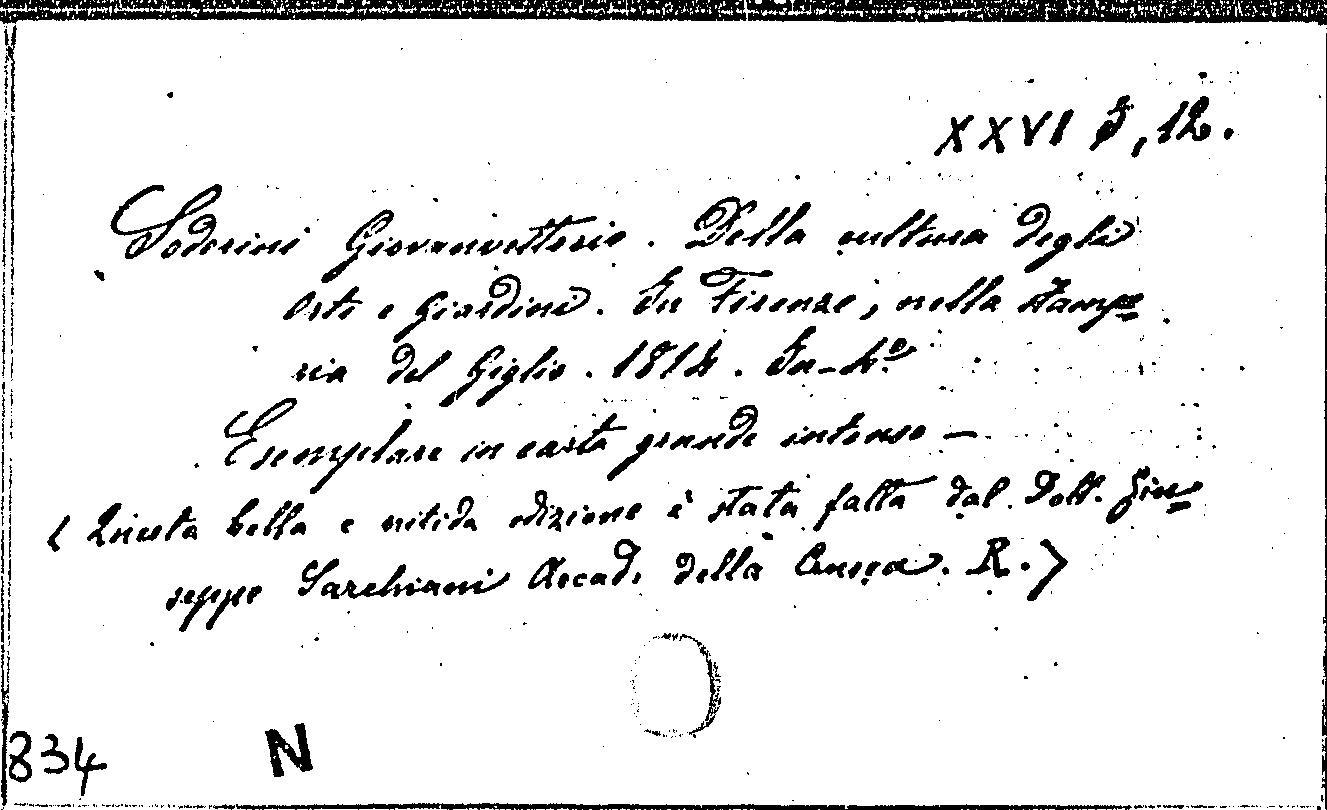 XXVI J, 12.
Soderini Giovanvettorio. Della cultura degli
Orti e Giardini. In Firenze, nella stampe=
ria del Giglio. 1814. In-4.º
Esemplare in carta grande intenso –
( Questa bella e nitida edizione è stata fatta dal Dott. Giu=
seppe Sarchiani Accad. della Crusca. R.)
834 N